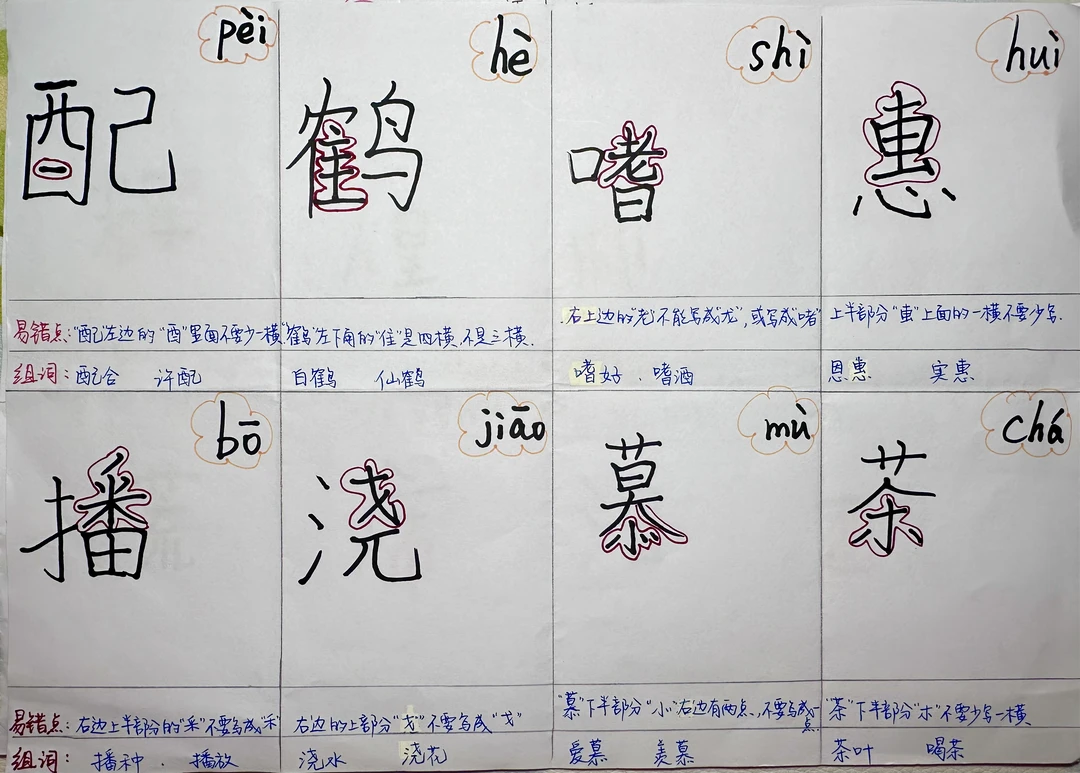 pèi
hè
shì
huì
配
鹤
嗜
惠
易错点:"配"左边的"酉"里面不要少一横
"鹤"左下角的"隹"是四横,不是三横.
右上边的"老"不能写成"龙",或写成"啫"
上半部分"叀"上面的一横不要少写.
组词:配合 许配
白鹤 仙鹤
嗜好、嗜酒
恩惠 实惠
bō
jiāo
mù
chá
播
浇
慕
茶
易错点:右边上半部分的"釆"不要写成"禾"
右边的上部分"戈"不要写成"戈"
"慕"下半部分"小"右边有两点,不要写成一点.
"茶"下半部分"木"不要少写一横
组词:播种、播放
浇水 浇花
爱慕 羡慕
茶叶 喝茶